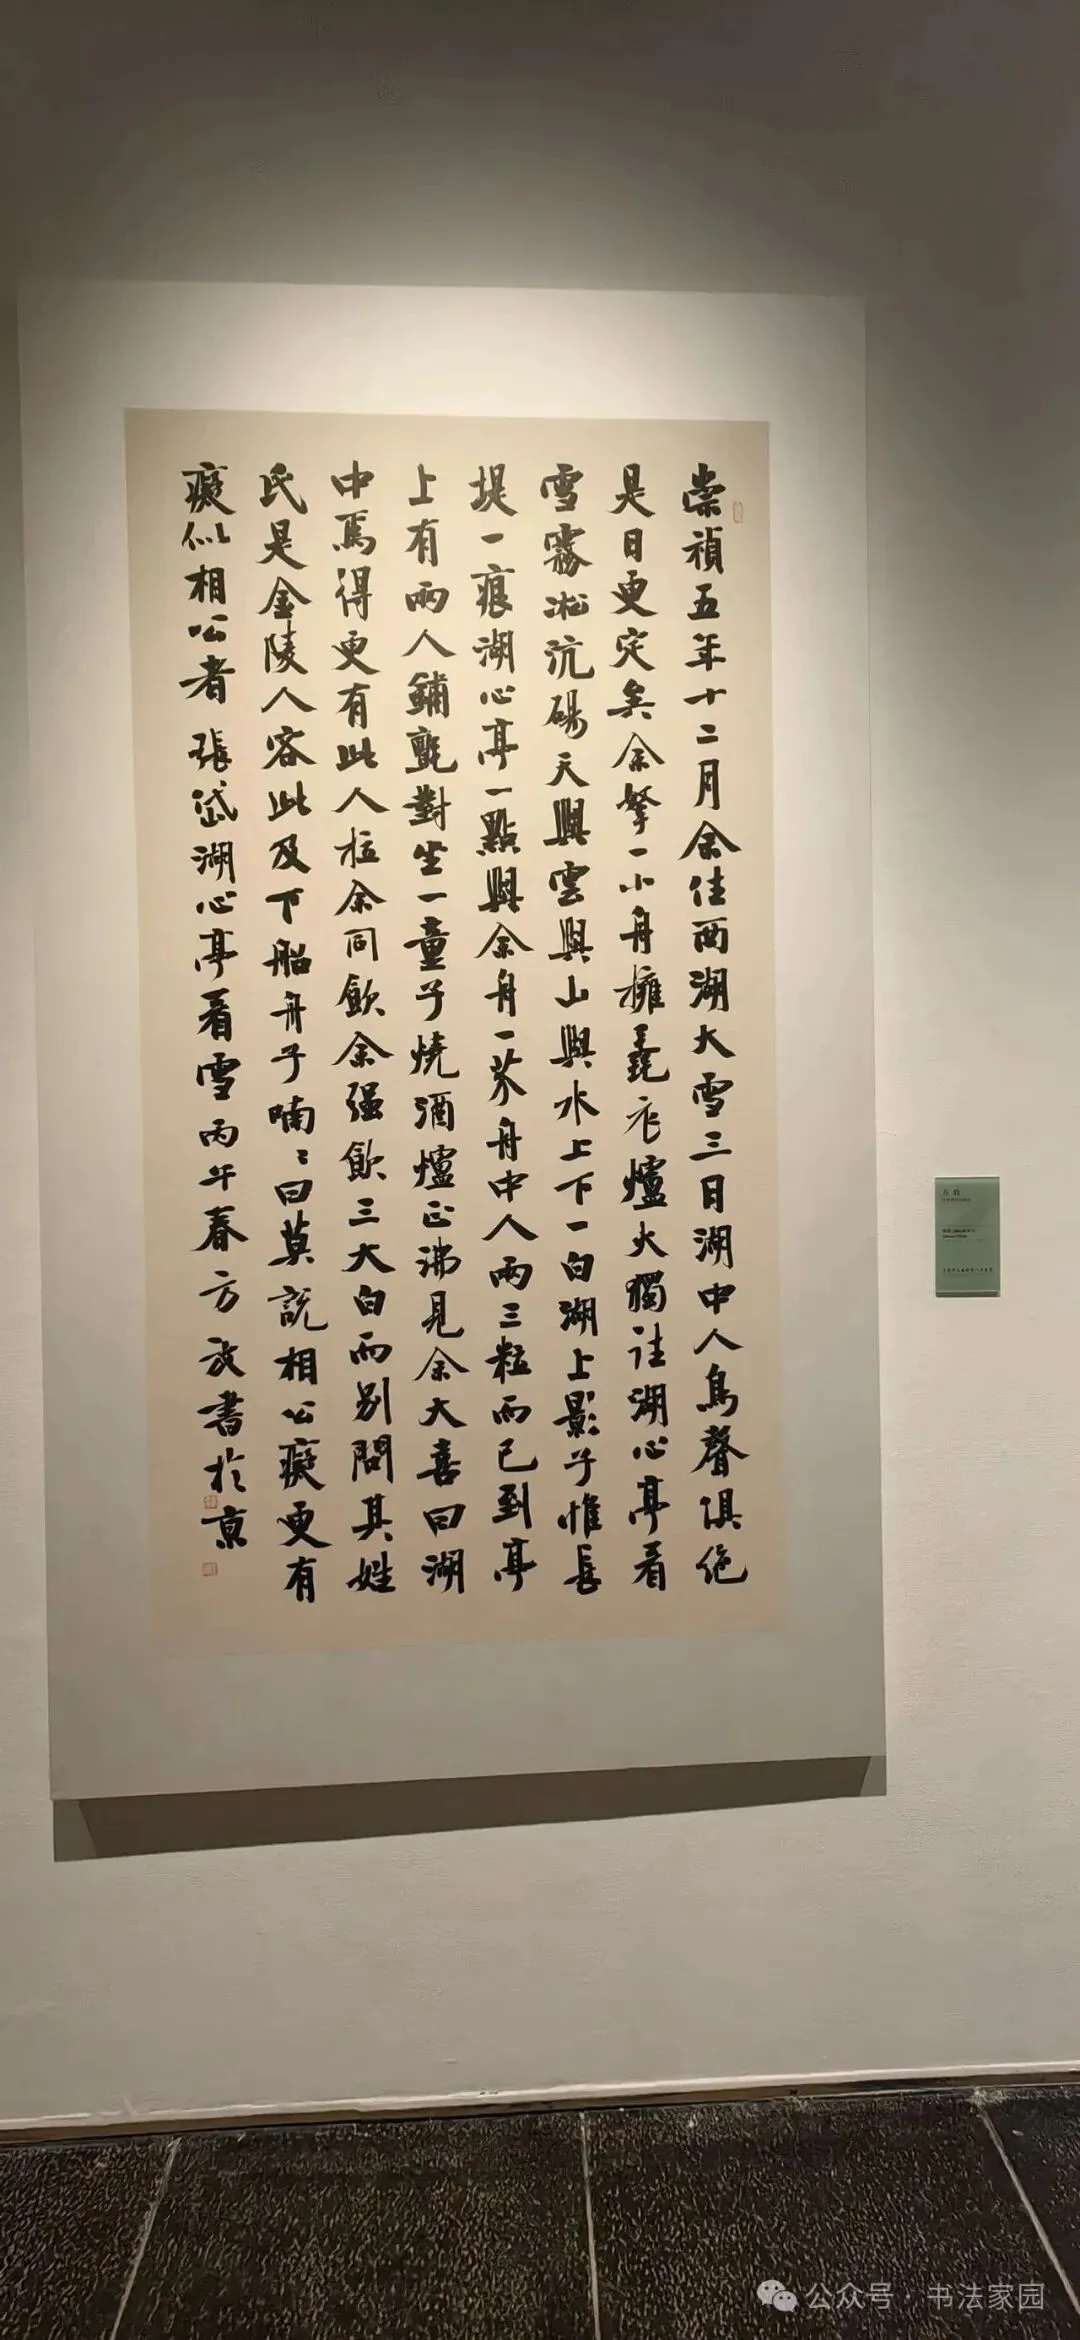 崇禎五年十二月余住西湖大雪三日湖中人鳥聲俱絶
是日更定矣余拏一小舟擁毳衣爐火獨往湖心亭看
雪霧凇沆碭天與雲與山與水上下一白湖上影子惟長
堤一痕湖心亭一點與余舟一芥舟中人兩三粒而已到亭
上有兩人鋪氈對坐一童子燒酒爐正沸見余大喜曰湖
中焉得更有此人拉余同飲余強飲三大白而別問其姓
氏是金陵人客此及下船舟子喃〻曰莫說相公癡更有
癡似相公者 張岱湖心亭看雪 丙午春方放書於京
公众号 · 书法家园